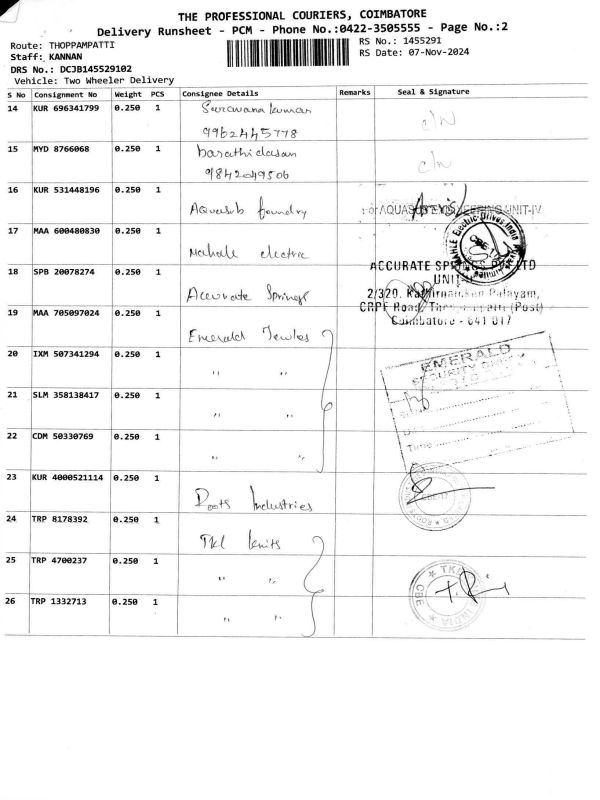 THE PROFESSIONAL COURIERS, COIMBATORE
Delivery Runsheet - PCM - Phone No.:0422-3505555 - Page No.:2
Route: THOPPAMPATTI
RS No.: 1455291
Staff: KANNAN
RS Date: 07-Nov-2024
DRS No.: DCJB145529102
Vehicle: Two Wheeler Delivery
S No Consignment No Weight PCS Consignee Details Remarks Seal & Signature
14 KUR 696341799 0.250 1 Saravana kumar c/n
9962445778
15 MYD 8766068 0.250 1 barathidasan c/n
9842049506
16 KUR 531448196 0.250 1 Aquasub foundry
For AQUASUB ENGINEERING UNIT-IV
17 MAA 600480830 0.250 1 Mahale electric
MAHLE Electric Drives India
18 SPB 20078274 0.250 1 Accurate Springs
ACCURATE SPRINGS PVT LTD
UNIT
2/320,
CRPF Road, (Post)
Coimbatore - 641 017
19 MAA 705097024 0.250 1 Emerald Jewles
20 IXM 507341294 0.250 1 " "
EMERALD
SECURITY
21 SLM 358138417 0.250 1 " "
22 CDM 50330769 0.250 1 " "
Time
23 KUR 4000521114 0.250 1 Roots Industries
24 TRP 8178392 0.250 1 Tkl knits
25 TRP 4700237 0.250 1 " "
TKL
CBE
INDIA
26 TRP 1332713 0.250 1 " "